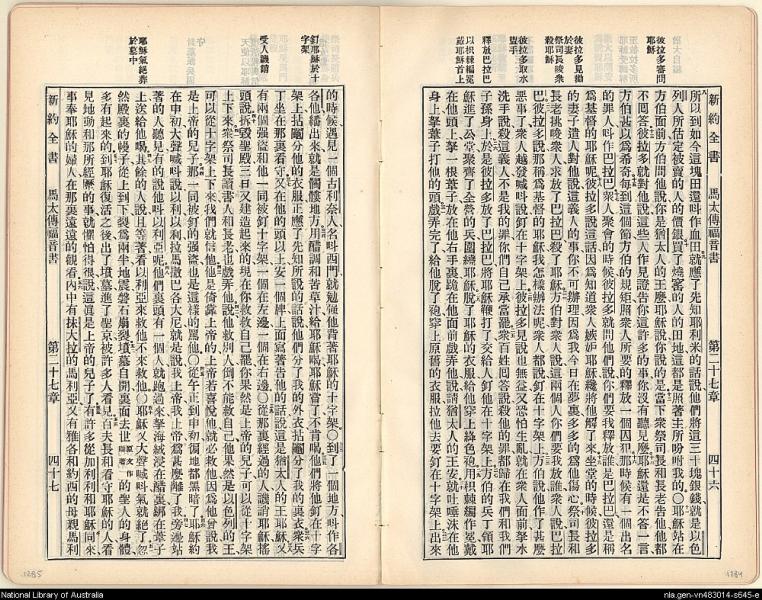 新約全書 馬太傳福音書 第二十七章 四十六
彼拉多審問
耶穌
彼拉多見勸
於妻
祭司長唆衆
殺耶穌
彼拉多取水
盥手
釋放巴拉巴
戴耶穌首上
所以到如今這塊田還叫作血田就應了先知耶利米的話說他們將這三十塊銀錢就是以色
列人所估定被賣的人的價銀買了燒窰的人的田地這都是照著主所吩咐我的〇耶穌站在
方伯面前方伯問他說你是猶太人的王麼耶穌說你說的是當下衆祭司長和長老告他他都
不囘答彼拉多就對他說這些人作見證告你這許多的事你沒有聽見麼耶穌還是不答一言
方伯甚以爲希奇每到這個節方伯的規矩照衆人所要的釋放一個囚犯那時候有一個出名
的罪人叫作巴拉巴衆人聚會的時候彼拉多就問他們說你們要我釋放誰是巴拉巴還是稱
爲基督的耶穌呢彼拉多說這話因爲知道衆人嫉妒耶穌纔將他解了來坐堂的時候彼拉多
的妻子遣人對他說這義人的事你不可辦理因爲我今日在夢裏多多的爲他傷心祭司長和
長老挑唆衆人求放了巴拉巴殺了耶穌方伯對衆人說這兩個人你們要我放誰衆人說巴拉
巴彼拉多說那稱爲基督的耶穌我怎樣辦法呢衆人都說釘在十字架上方伯說他作了甚麼
惡事呢衆人越發喊叫說釘在十字架上彼拉多見說也無益又恐怕生亂就在衆人面前拏水
洗手說殺這義人不是我的罪你們自己承當罷衆百姓囘答說殺他的罪都歸在我們和我們
子孫身上於是彼拉多放了巴拉巴將耶穌鞭打了交給人釘他在十字架上方伯的兵丁領耶
穌進了公堂聚齊了全營的兵圍繞耶穌脫了耶穌的衣服給他穿上絳色袍用枳棘編作冕戴
在他頭上拏一根葦子放在他右手裏跪在他面前戲弄他說請猶太人的王安就吐唾沫在他
身上拏葦子打他的頭戲弄完了給他脫了袍穿上原舊的衣服拉他去要釘在十字架上出來
釘耶穌於十
字架
受人譏誚
耶穌氣絕葬
於墓中
的時候遇見一個古利奈人名叫西門就勉強他背著耶穌的十字架〇到了一個地方叫作各
各他繙出來就是髑髏地方用醋調和苦草汁給耶穌喝耶穌嘗了不肯喝他們將他釘在十字
架上拈鬮分他的衣服正應了先知所說的話說他們分了我的外衣拈鬮分了我的裏衣衆兵
丁坐在那裏看守又在他的頭以上安一個牌上面寫著吿他的話說這是猶太人的王耶穌又
有兩個强盜和他一同被釘十字架一個在左邊一個在右邊〇從那裏經過的人譏誚耶穌搖
頭說拆毀聖殿三日又建造起來的現在你救救自己罷你果然是上帝的兒子可以從十字架
上下來衆祭司長讀書人和長老也戲弄他說他救別人倒不能救自己他果然是以色列的王
可以從十字架上下來我們就信他他是倚靠上帝的上帝若喜悅他就必救他因爲他曾說我
是上帝的兒子那一同被釘的强盜也是這樣的罵他〇從午正到申初徧地都黑暗了耶穌約
在申初大聲喊叫說以利以利拉馬撒巴各大尼就是說我上帝我上帝爲甚麼離了我旁邊站
著的人聽見有的說他叫以利亞呢他們裏頭有一個人就跑過來拏海絨浸在醋裏綁在葦子
上次給他喝其餘的人說且等著看以利亞來救他不來救他〇耶穌又大聲喊叫氣就絕了忽
然殿裏的幔子從上到下裂爲兩半地震磐石崩裂墳墓自開裏面去世的聖人的身體
多有起來的到耶穌復活之後出了墳墓進了聖京被許多人看見百夫長和看守耶穌的人看
見地動和那所經歷的事就懼怕得很說這眞是上帝的兒子了有許多從加利利和耶穌同來
事奉耶穌的婦人在那裏遠遠的觀看內中有抹大拉的馬利亞又有雅各和約西的母親馬利
新約全書 馬太傳福音書 第二十七章 四十七
1285
1284
National Library of Australia
nla.gen-vn483014-s645-e